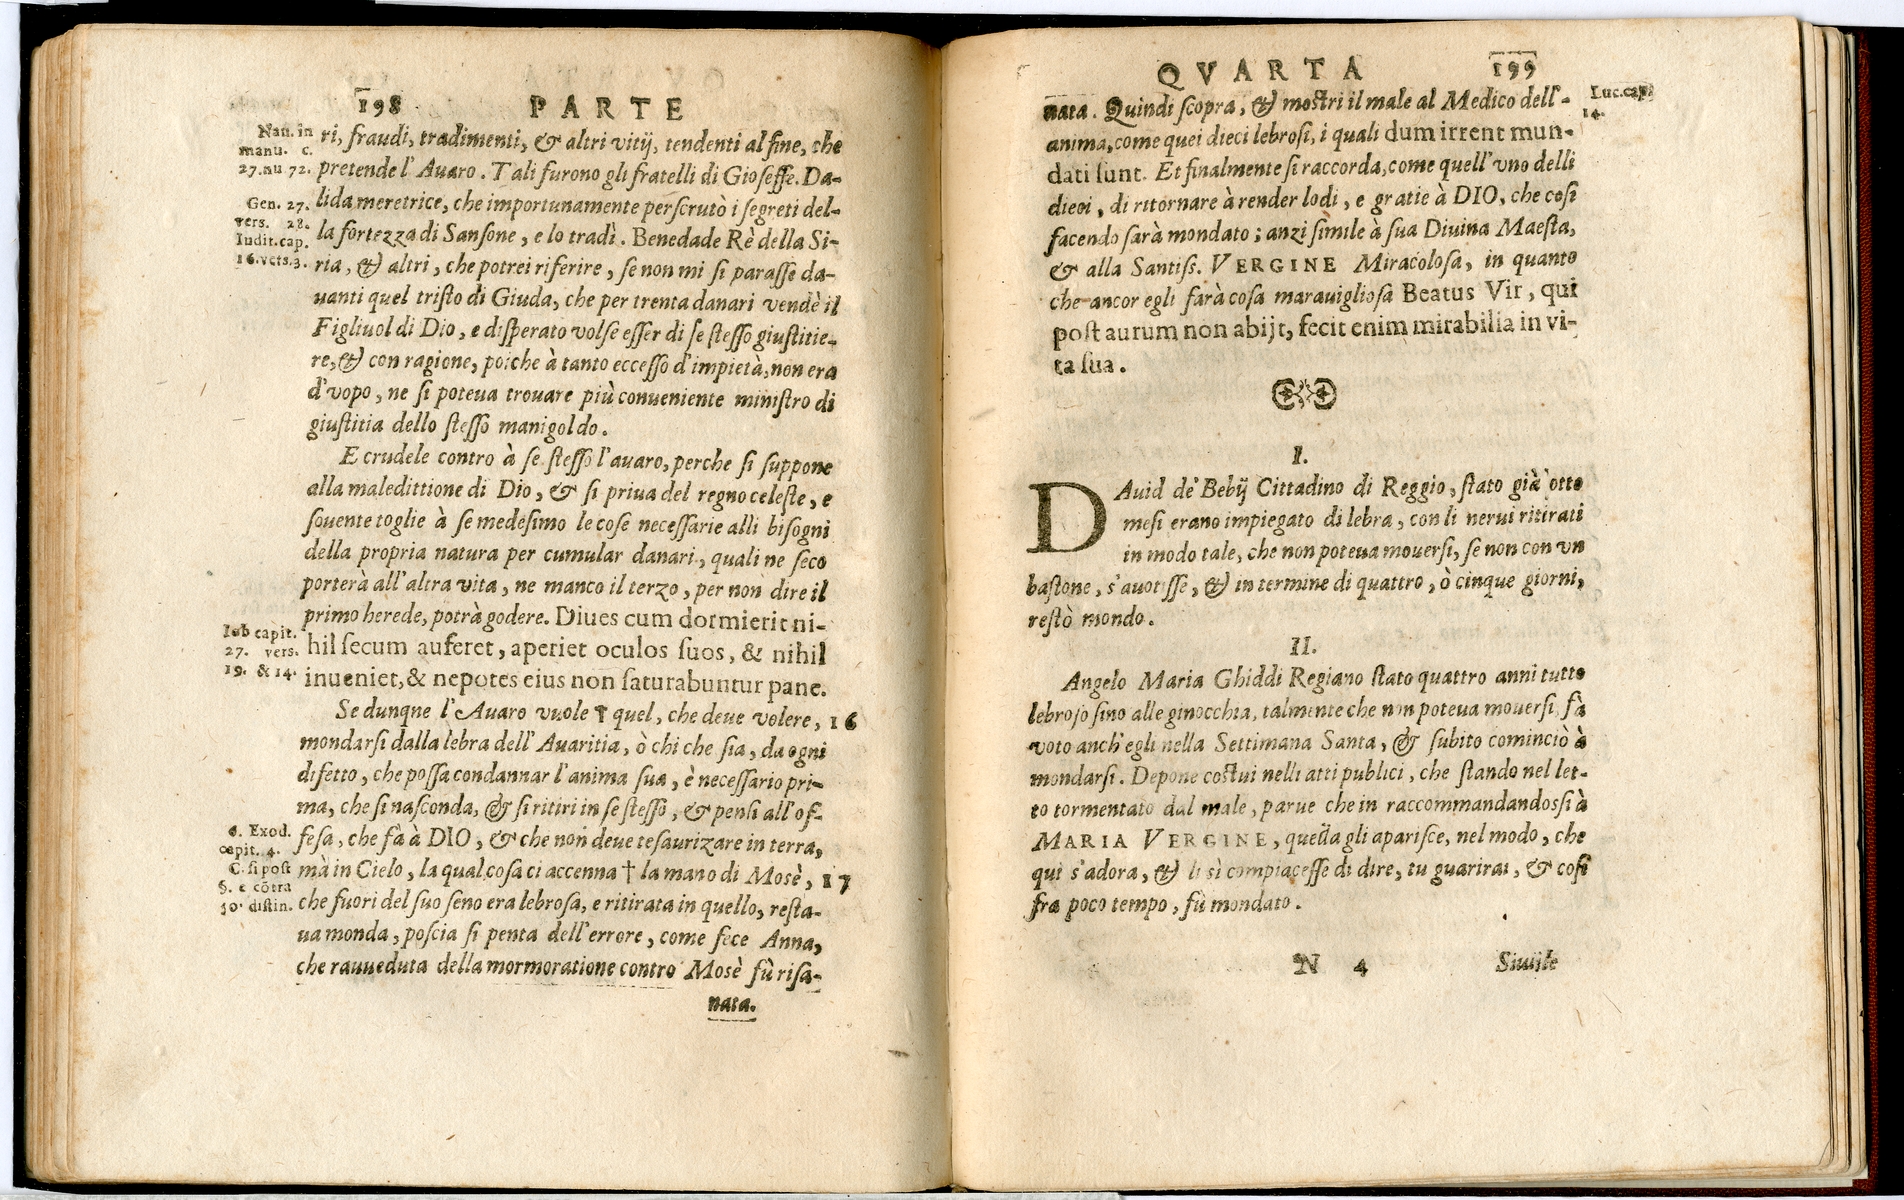 198 PARTE
Nau. in
manu. c.
27. nu 72.
Gen. 27.
vers. 28.
Iudit. cap.
16. vers. 3.
ri, fraudi, tradimenti, & altri vitij, tendenti al fine, che
pretende l'Auaro. Tali furono gli fratelli di Gioseffe. Da-
lida meretrice, che importunamente perscrutò i segreti del-
la fortezza di Sansone, e lo tradì. Benedade Rè della Si-
ria, & altri, che potrei riferire, se non mi si parasse da-
uanti quel tristo di Giuda, che per trenta danari vendè il
Figliuol di Dio, e disperato volse esser di se stesso giustitie-
re, & con ragione, poiche à tanto eccesso d'impietà, non era
d'vopo, ne si poteua trouare più conueniente ministro di
giustitia dello stesso manigoldo.
E crudele contro à se stesso l'auaro, perche si suppone
alla maledittione di Dio, & si priua del regno celeste, e
souente toglie à se medesimo le cose necessarie alli bisogni
della propria natura per cumular danari, quali ne seco
porterà all'altra vita, ne manco il terzo, per non dire il
primo herede, potrà godere. Diues cum dormierit ni-
hil secum auferet, aperiet oculos suos, & nihil
inueniet, & nepotes eius non saturabuntur pane.
Iob capit.
27. vers.
19. & 14.
Se dunque l'Auaro vuole † quel, che deue volere, 16
mondarsi dalla lebra dell'Auaritia, ò chi che sia, da ogni
difetto, che possa condannar l'anima sua, è necessario pri-
ma, che si nasconda, & si ritiri in se stesso, & pensi all'of-
fesa, che fà à DIO, & che non deue tesaurizare in terra,
mà in Cielo, la qual cosa ci accenna † la mano di Mosè, 17
che fuori del suo seno era lebrosa, e ritirata in quello, resta-
ua monda, poscia si penta dell'errore, come fece Anna,
che rauueduta della mormoratione contro Mosè fù risa-
nata.
Exod.
capit. 4.
C. si post
§. e cõtra
50. distin.
QVARTA 199
nata. Quindi scopra, & mostri il male al Medico dell'-
anima, come quei dieci lebrosi, i quali dum irrent mun-
dati sunt. Et finalmente si raccorda, come quell'vno delli
dieci, di ritornare à render lodi, e gratie à DIO, che cosi
facendo sarà mondato; anzi simile à sua Diuina Maesta,
& alla Santiss. VERGINE Miracolosa, in quanto
che ancor egli farà cosa marauigliosa Beatus Vir, qui
post aurum non abijt, fecit enim mirabilia in vi-
ta sua.
Luc. cap.
14.
I.
DAuid de' Bebij Cittadino di Reggio, stato già otto
mesi erano impiegato di lebra, con li nerui ritirati
in modo tale, che non poteua mouersi, se non con vn
bastone, s'auotisse, & in termine di quattro, ò cinque giorni,
restò mondo.
II.
Angelo Maria Ghiddi Regiano stato quattro anni tutto
lebroso sino alle ginocchia, talmente che non poteua mouersi fà
voto anch'egli nella Settimana Santa, & subito cominciò à
mondarsi. Depone costui nelli atti publici, che stando nel let-
to tormentato dal male, parue che in raccommandandossi à
MARIA VERGINE, quella gli aparisce, nel modo, che
quì s'adora, & li sì compiacesse di dire, tu guarirai, & cosi
fra poco tempo, fù mondato.
N 4 Simile